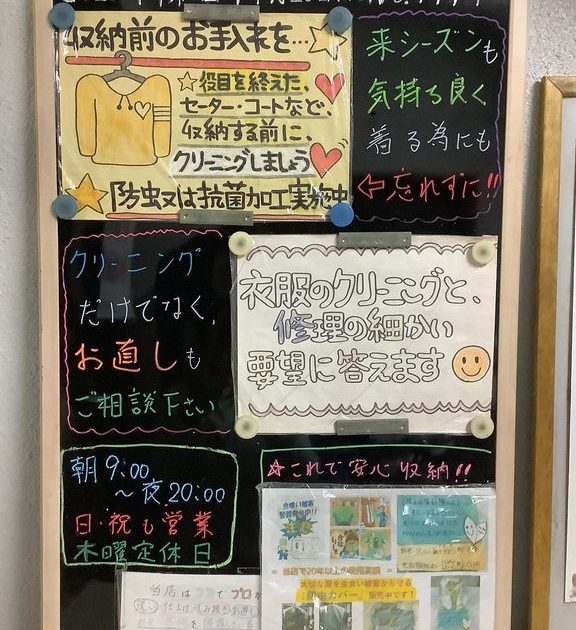 収納前のお手入れを…
役目を終えた、
セーター・コートなど、
収納する前に、
クリーニングしましょう
防虫又は抗菌加工実施中
来シーズンも
気持ち良く
着る為にも
忘れずに!!
クリーニング
だけでなく、
お直しも
ご相談下さい
衣服のクリーニングと、
修理の細かい
要望に答えます
朝9:00
～夜20:00
日・祝も営業
木曜定休日
☆これで安心収納!!
虫喰い被害
当店で20年以上の使用実績
大切な服を虫食い被害から守る
「防虫カバー」販売中です!
当店は
プロが